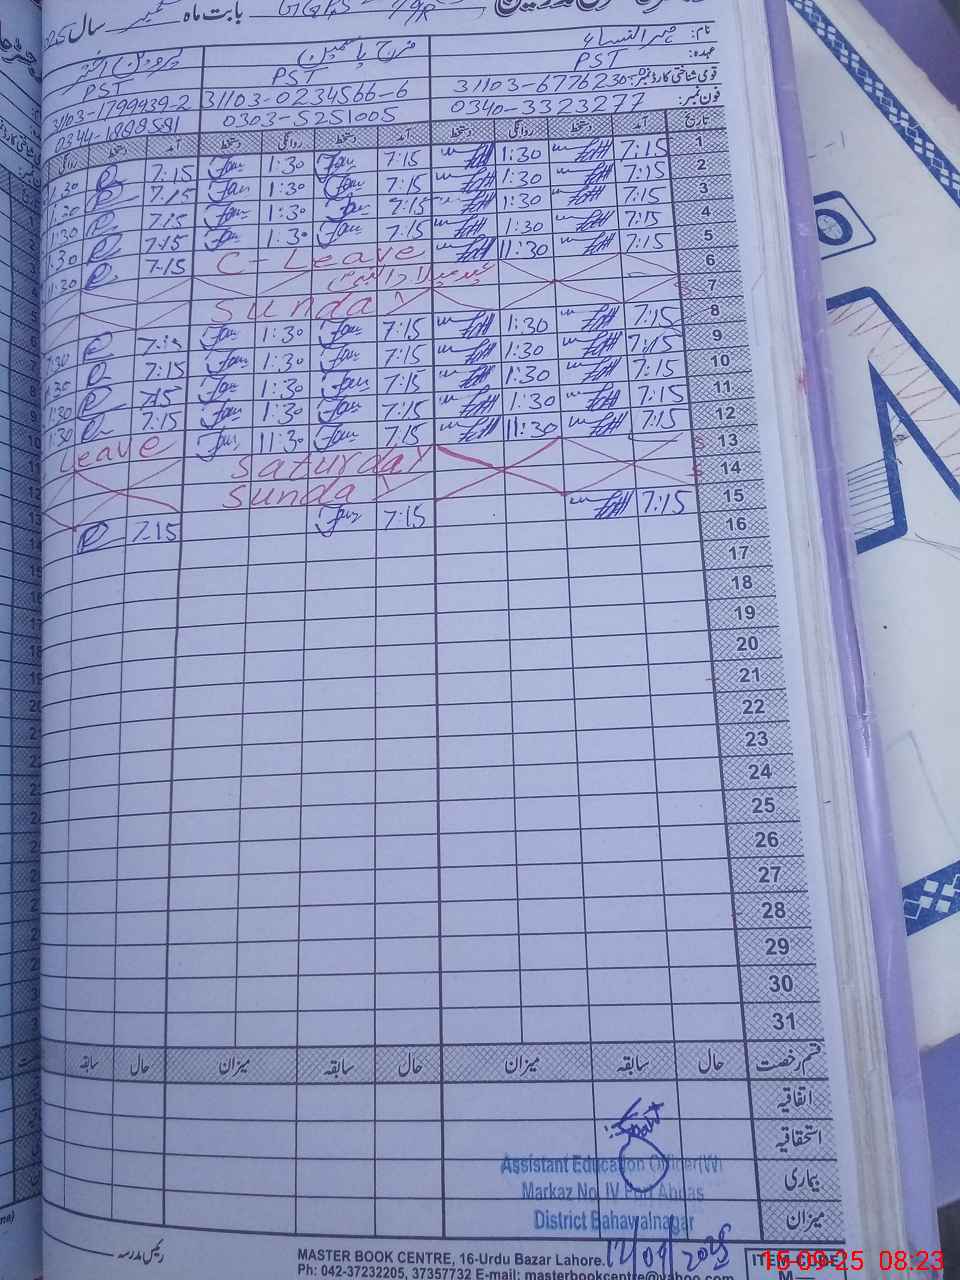 بابت ماہ ستمبر سال 2025
نام: مہرالنساء فرح یاسمین پروین اختر
عہدہ: PST PST PST
قومی شناختی کارڈ نمبر: 31103-6776230 31103-0234566-6 31103-1799939-2
فون نمبر: 0340-3323277 0303-5251005
تاریخ آمد دستخط روانگی دستخط آمد دستخط روانگی دستخط آمد دستخط روانگی
1 7:15 1:30 7:15 1:30 7:15 1:30
2 7:15 1:30 7:15 1:30 7:15 1:30
3 7:15 1:30 7:15 1:30 7:15 1:30
4 7:15 1:30 7:15 1:30 7:15 1:30
5 7:15 11:30 C-Leave 7:15 11:30
6 عید میلاد النبی
7 Sunday
8 7:15 1:30 7:15 1:30 7:15 1:30
9 7:15 1:30 7:15 1:30 7:15 1:30
10 7:15 1:30 7:15 1:30 7:15 1:30
11 7:15 1:30 7:15 1:30 7:15 1:30
12 7:15 11:30 7:15 11:30 Leave
13 Saturday
14 Sunday
15 7:15 7:15 7:15
16
17
18
19
20
21
22
23
24
25
26
27
28
29
30
31
قسم رخصت حال سابقہ میزان حال سابقہ میزان حال سابقہ
اتفاقیہ
استحقاقیہ
بیماری
میزان
Assistant Education Officer(W)
Markaz No. IV Fort Abbas
District Bahawalnagar
12/09/2025
رئیس مدرسہ
MASTER BOOK CENTRE, 16-Urdu Bazar Lahore.
Ph: 042-37232205, 37357732 E-mail: masterbookcentre@yahoo.com
ITEM CODE
M
15-09-25 08:23